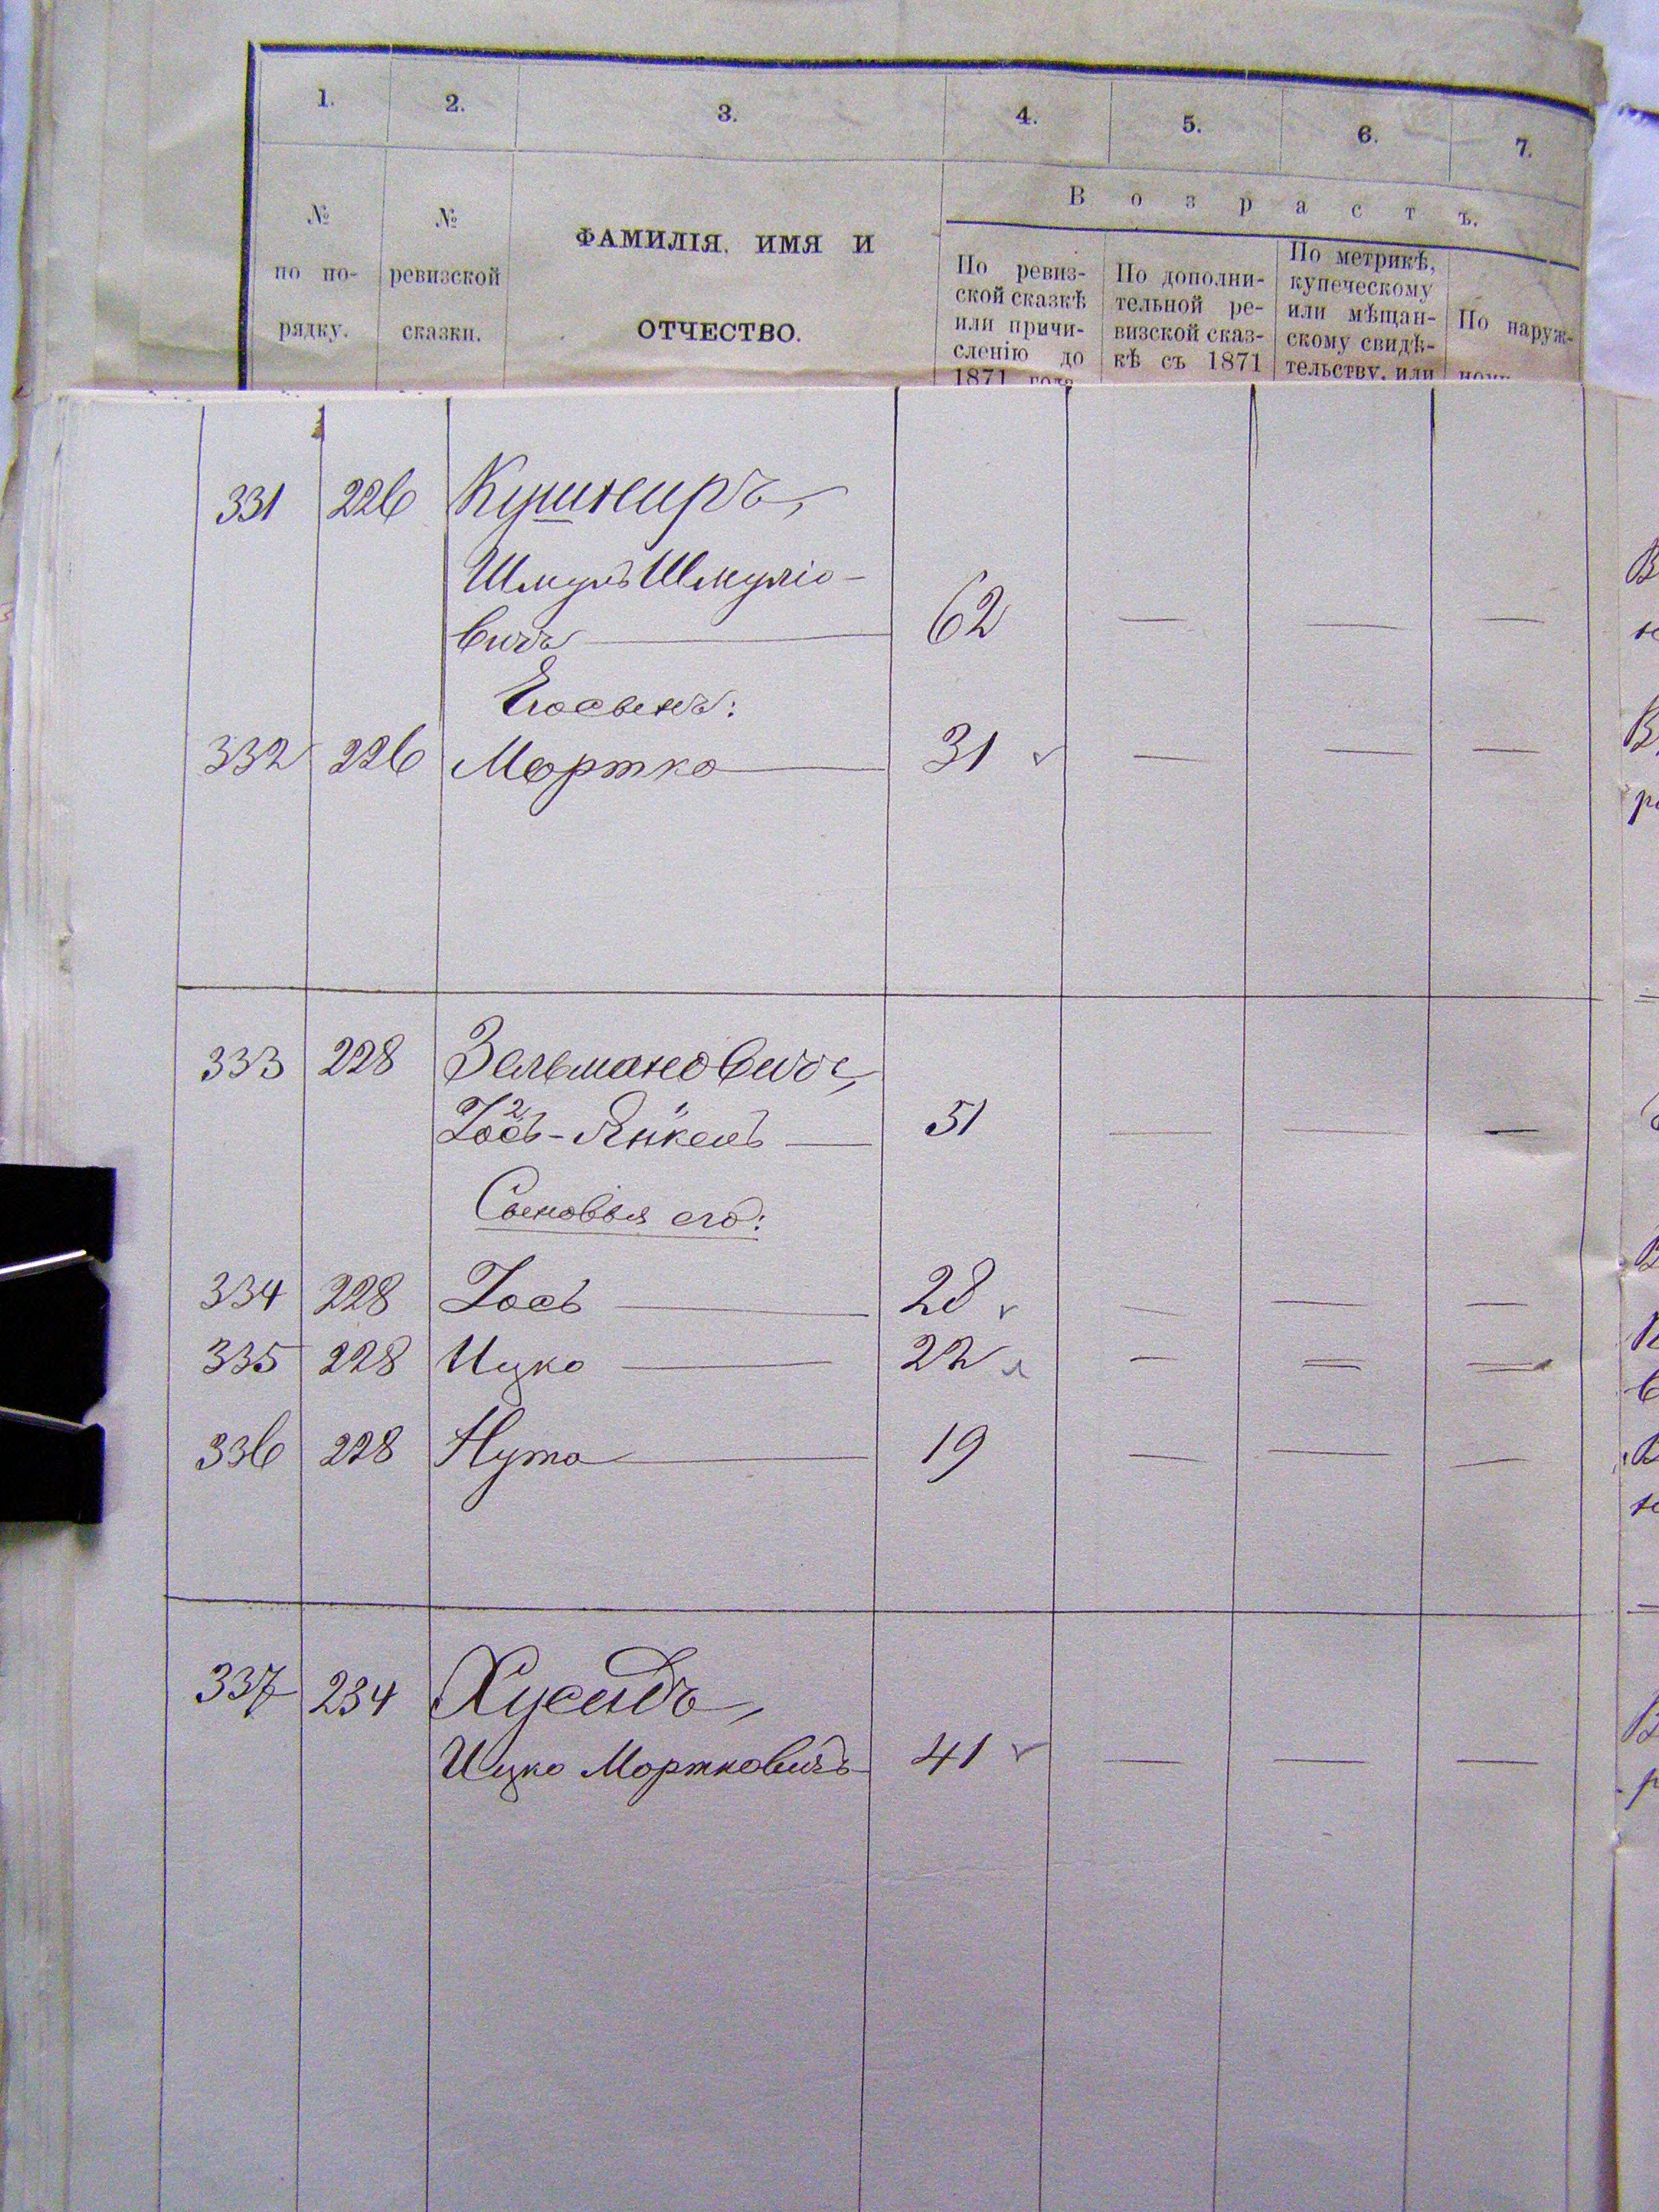 1. 2. 3. 4. 5. 6. 7.
В о з р а с т ъ.
№ по по-рядку.
№ ревизской сказки.
ФАМИЛІЯ, ИМЯ И
ОТЧЕСТВО.
По ревиз-
ской сказкѣ
или причи-
сленію до
1871 года
По дополни-
тельной ре-
визской сказ-
кѣ съ 1871
По метрикѣ,
купеческому
или мѣщан-
скому свидѣ-
тельству, или
По наруж-
331 226 Кушниръ,
Шмуль Шмуліо-
вичъ — 62 — — —
Его сынъ:
332 226 Мортко — 31 — — —
333 228 Зельмановичъ,
Іось-Янкель — 51 — — —
Сыновья его:
334 228 Іось — 28 — — —
335 228 Ицко — 22 — — —
336 228 Нута — 19 — — —
337 234 Хусидъ,
Ицко Мортковичъ 41 — — —